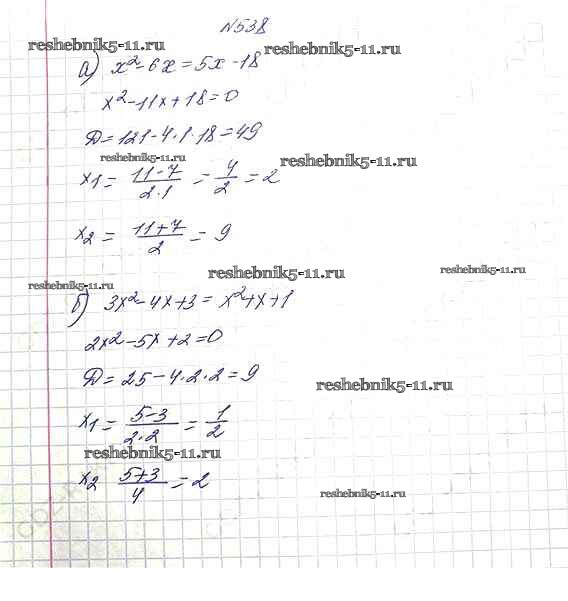 №538
reshebnik5-11.ru
reshebnik5-11.ru
а) x²-6x=5x-18
x²-11x+18=0
Д=121-4·1·18=49
reshebnik5-11.ru
reshebnik5-11.ru
x1= (11-7)/(2·1) = 4/2 =2
x2= (11+7)/2 = 9
reshebnik5-11.ru
reshebnik5-11.ru
reshebnik5-11.ru
б) 3x²-4x+3= x²+x+1
2x²-5x+2=0
Д=25-4·2·2=9
reshebnik5-11.ru
x1= (5-3)/(2·2) = 1/2
reshebnik5-11.ru
x2 (5+3)/4 =2
reshebnik5-11.ru